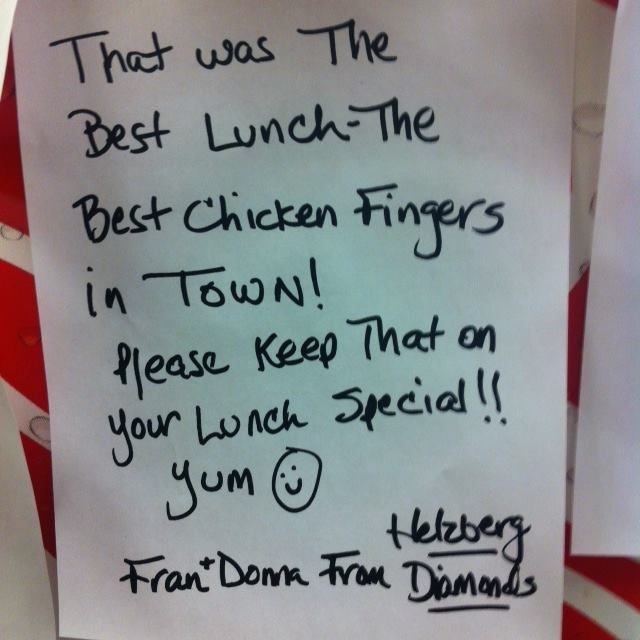 That was The
Best Lunch-The
Best Chicken Fingers
in TOWN!
Please Keep That on
your Lunch Special!!
Yum ☺
Helzberg
Fran + Donna From Diamonds